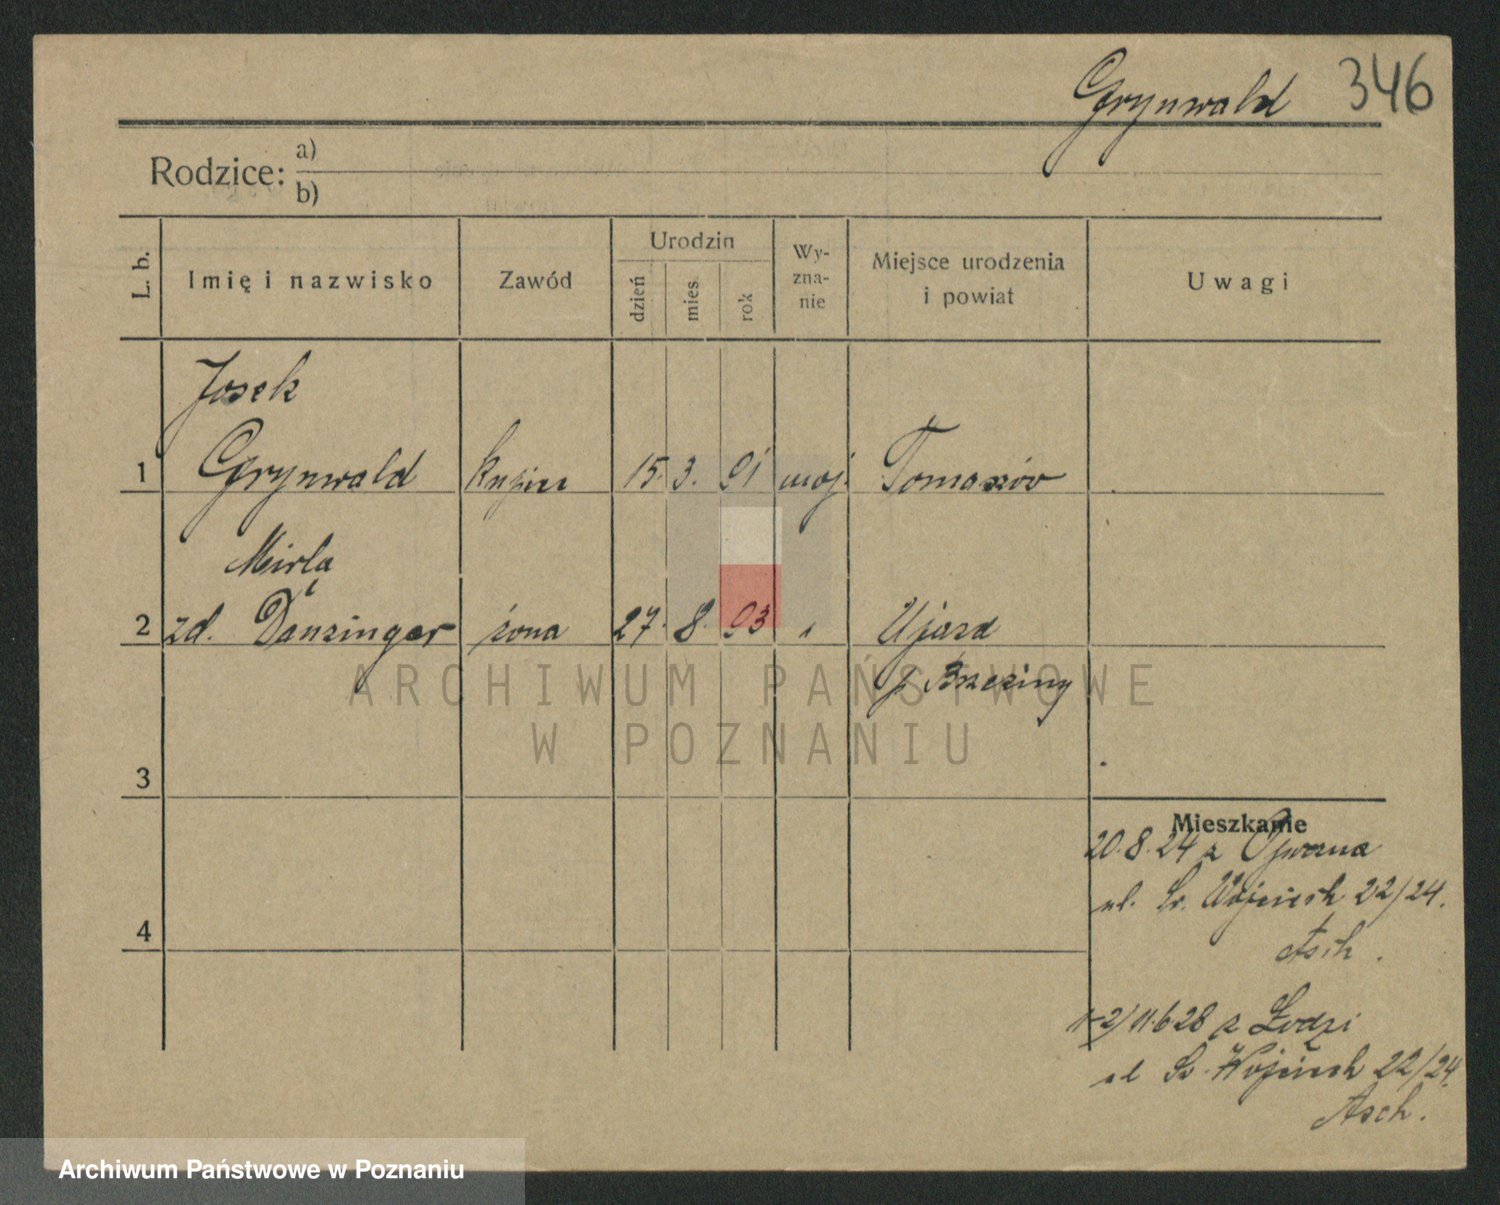 Grynwald 346
Rodzice: a)
b)
L. b. Imię i nazwisko Zawód Urodzin dzień mies. rok Wy-
zna-
nie Miejsce urodzenia
i powiat Uwagi
Josek
1 Grynwald kupiec 15. 3. 91 mojż. Tomaszów
Mirla
2 zd. Danzinger żona 27. 8. 93 " Ujazd
p. Brzeziny
ARCHIWUM PAŃSTWOWE
W POZNANIU
3
Mieszkanie
20.8.24 z
ul. Św. Wojciech 22/24.
4
Asch.
1-2/11.6 28 z Łodzi
ul Św. Wojciech 22/24.
Asch.
Archiwum Państwowe w Poznaniu